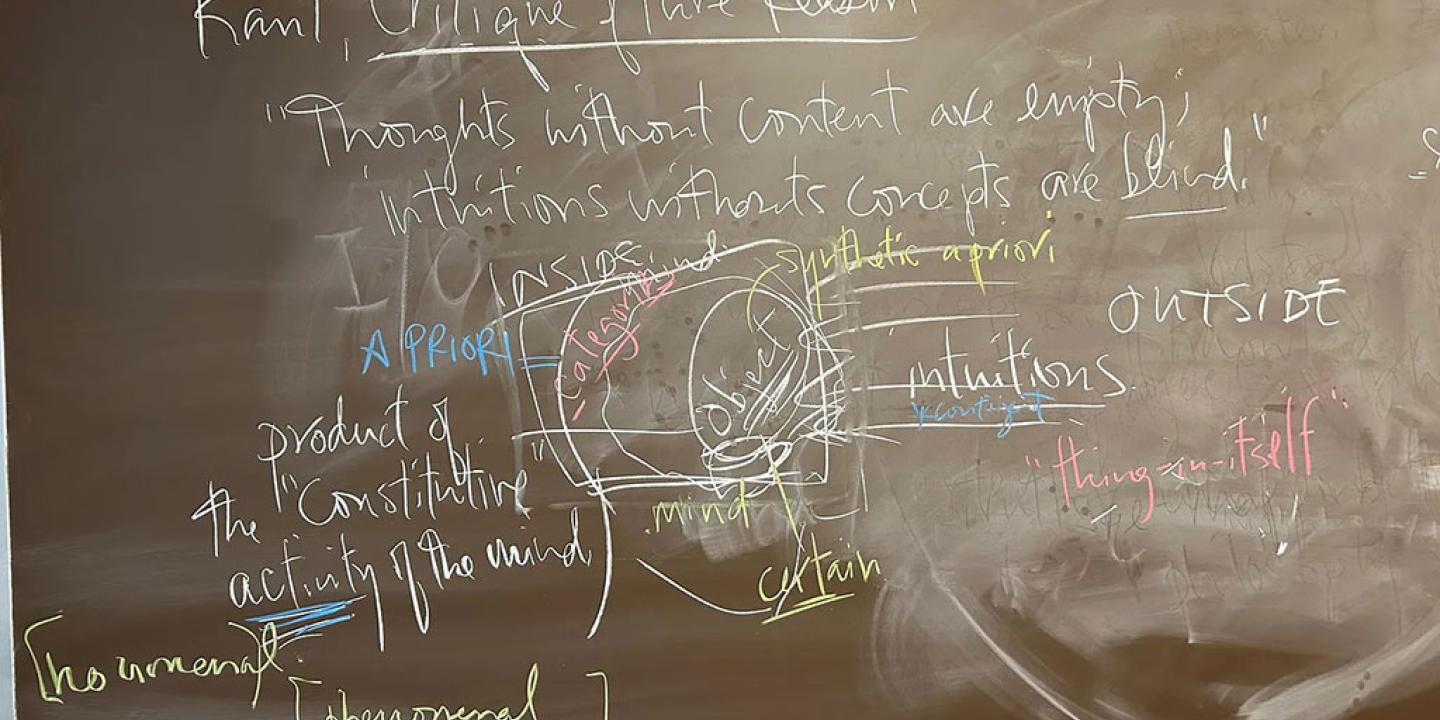 Kant, Critique of Pure Reason
"Thoughts without content are empty;
intuitions withouts concepts are blind."
I/O
INSIDE mind
synthetic a priori
OUTSIDE
A PRIORI
categories
object
intuitions
"thing-in-itself"
product of
the "constitutive"
activity of the mind
mind
certain
[noumenal]
[phenomenal]